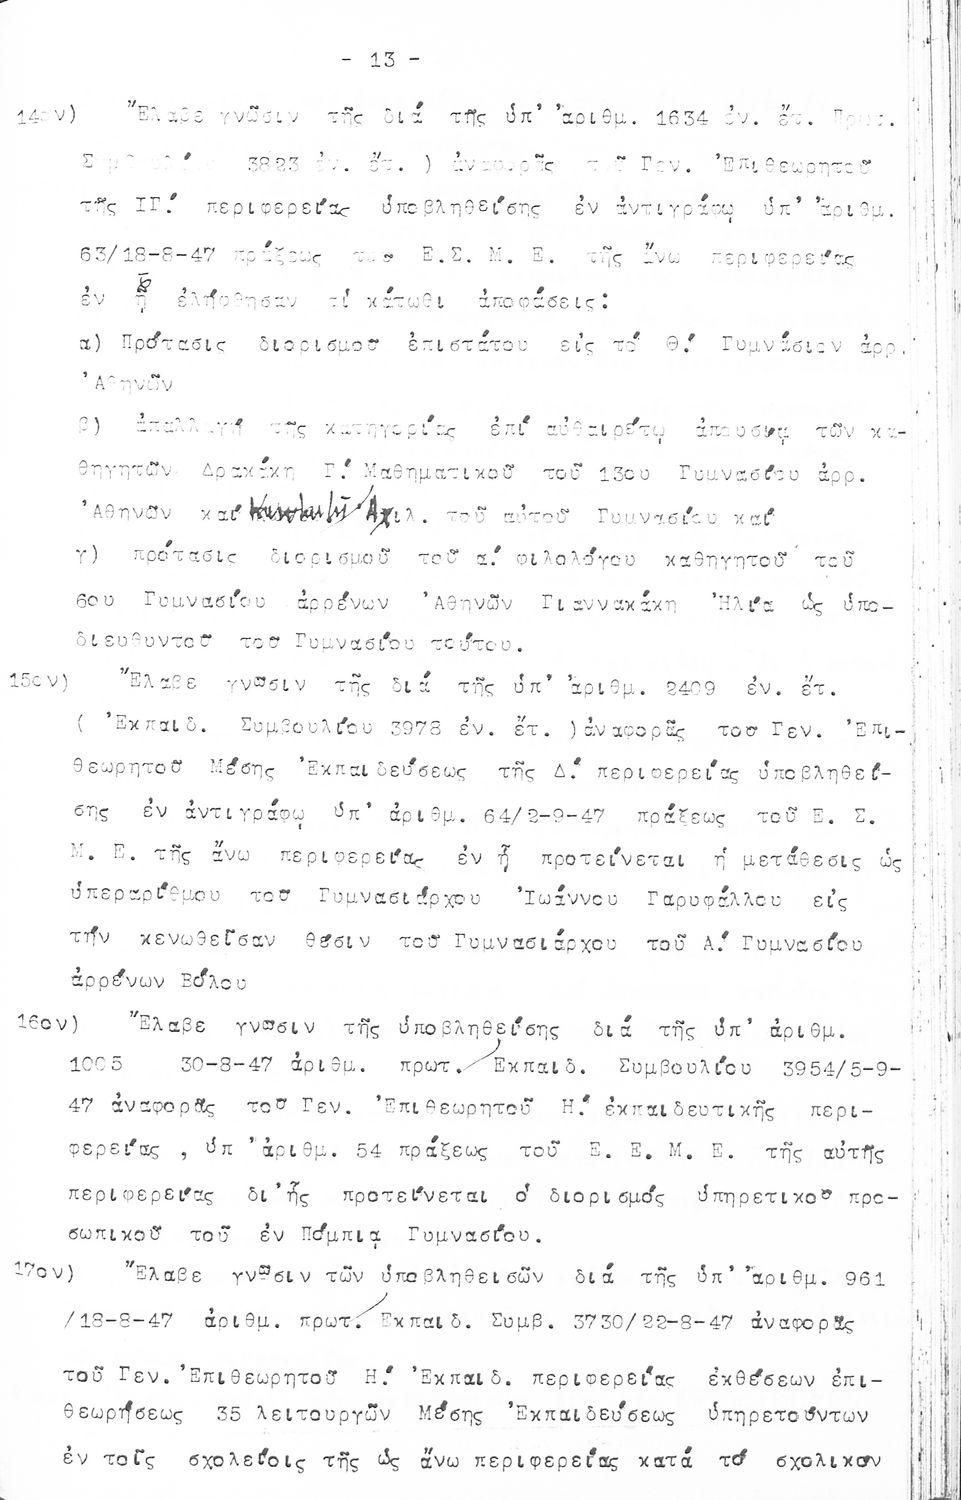 - 13 -
14ον) Ἔλαβε γνῶσιν τῆς διά τῆς ὑπ' ἀριθμ. 1634 ἐν. ἔτ. Πρωτ.
3823 ἐν. ἔτ. ) ἀναφορᾶς τοῦ Γεν. Ἐπιθεωρητοῦ
τῆς ΙΓ.' περιφερείας ὑποβληθείσης ἐν ἀντιγράφῳ ὑπ' ἀριθμ.
63/18-8-47 πράξεως τοῦ Ε.Σ. Μ. Ε. τῆς ἄνω περιφερείας
ἐν ᾗ ἐλήφθησαν αἱ κάτωθι ἀποφάσεις:
α) Πρότασις διορισμοῦ ἐπιστάτου εἰς τό Θ.' Γυμνάσιον ἀρρ.
Ἀθηνῶν
β) ἀπαλλαγή τῆς κατηγορίας ἐπί αὐθαιρέτῳ ἀπουσίᾳ τῶν κα-
θηγητῶν Δρακάκη Γ.' Μαθηματικοῦ τοῦ 13ου Γυμνασίου ἀρρ.
Ἀθηνῶν καί Ἀχιλ. τοῦ αὐτοῦ Γυμνασίου καί
γ) πρότασις διορισμοῦ τοῦ α.' φιλολόγου καθηγητοῦ τοῦ
6ου Γυμνασίου ἀρρένων Ἀθηνῶν Γιαννακάκη Ἠλία ὡς ὑπο-
διευθυντοῦ τοῦ Γυμνασίου τούτου.
15ον) Ἔλαβε γνῶσιν τῆς διά τῆς ὑπ' ἀριθμ. 2409 ἐν. ἔτ.
( Ἐκπαιδ. Συμβουλίου 3978 ἐν. ἔτ. )ἀναφορᾶς τοῦ Γεν. Ἐπι-
θεωρητοῦ Μέσης Ἐκπαιδεύσεως τῆς Δ.' περιφερείας ὑποβληθεί-
σης ἐν ἀντιγράφῳ ὑπ' ἀριθμ. 64/2-9-47 πράξεως τοῦ Ε. Σ.
Μ. Ε. τῆς ἄνω περιφερείας ἐν ᾗ προτείνεται ἡ μετάθεσις ὡς
ὑπεραρίθμου τοῦ Γυμνασιάρχου Ἰωάννου Γαρυφάλλου εἰς
τήν κενωθεῖσαν θέσιν τοῦ Γυμνασιάρχου τοῦ Α.' Γυμνασίου
ἀρρένων Βόλου
16ον) Ἔλαβε γνῶσιν τῆς ὑποβληθείσης διά τῆς ὑπ' ἀριθμ.
1005 30-8-47 ἀριθμ. πρωτ. Ἐκπαιδ. Συμβουλίου 3954/5-9-
47 ἀναφορᾶς τοῦ Γεν. Ἐπιθεωρητοῦ Η.' ἐκπαιδευτικῆς περι-
φερείας , ὑπ' ἀριθμ. 54 πράξεως τοῦ Ε. Ε. Μ. Ε. τῆς αὐτῆς
περιφερείας δι' ἧς προτείνεται ὁ διορισμός ὑπηρετικοῦ προ-
σωπικοῦ τοῦ ἐν Πόμπιᾳ Γυμνασίου.
17ον) Ἔλαβε γνῶσιν τῶν ὑποβληθεισῶν διά τῆς ὑπ' ἀριθμ. 961
/18-8-47 ἀριθμ. πρωτ. Ἐκπαιδ. Συμβ. 3730/22-8-47 ἀναφορᾶς
τοῦ Γεν. Ἐπιθεωρητοῦ Η.' Ἐκπαιδ. περιφερείας ἐκθέσεων ἐπι-
θεωρήσεως 35 λειτουργῶν Μέσης Ἐκπαιδεύσεως ὑπηρετούντων
ἐν τοῖς σχολείοις τῆς ὡς ἄνω περιφερείας κατά τό σχολικόν